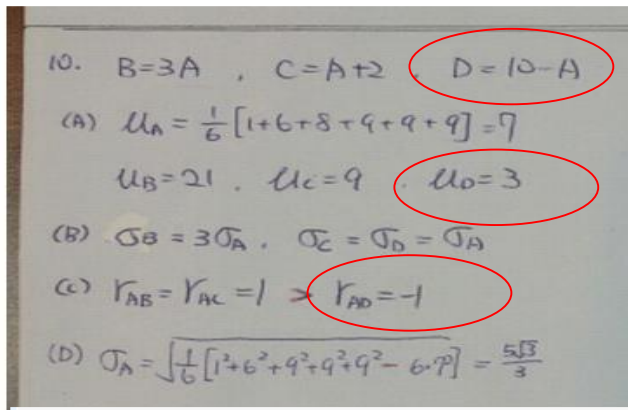 10. B=3A , C=A+2 , D=10-A
(A) μA = 1/6 [1+6+8+9+9+9] = 7
μB=21 . μC=9 . μD=3
(B) σB = 3σA . σC = σD = σA
(C) rAB = rAC = 1 > rAD = -1
(D) σA = √(1/6 [1²+6²+9²+9²+9² - 6·7²]) = 5√3/3